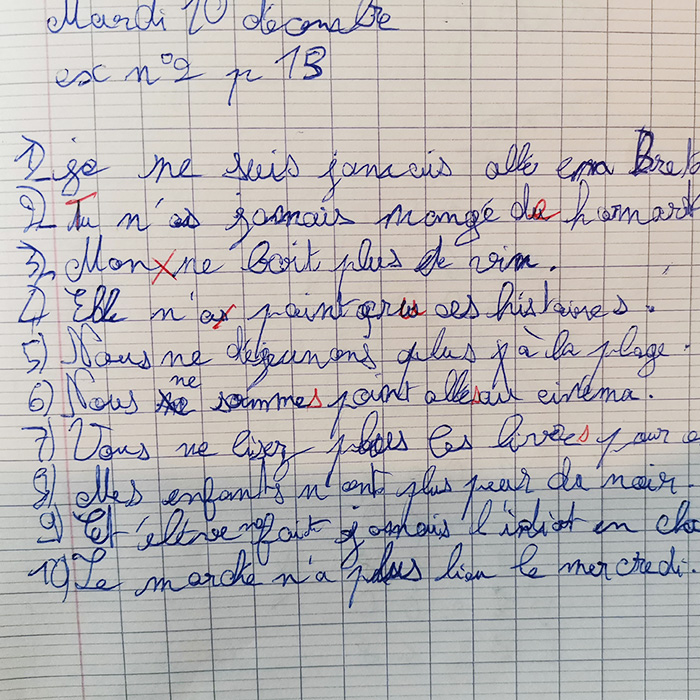 Mardi 10 décembre
exc n°2 p 13
1) je ne suis jamais allé en Bret
2) Tu n'as jamais mangé de homard
3) Mon ne boit plus de vin.
4) Elle n'a point cru ces histoires.
5) Nous ne déjeunons plus à la plage.
6) Nous ne sommes point allés au cinéma.
7) Vous ne lisez plus les livres pour
8) Mes enfants n'ont plus peur du noir.
9) Cet élève ne fait jamais l'idiot en cla
10) Le marché n'a plus lieu le mercredi.